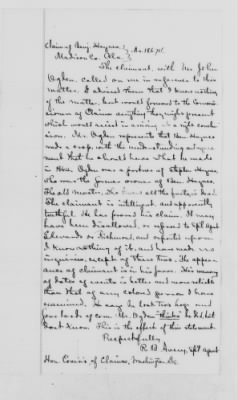 Claim of Benj. Haynes } No. 18671.
Madison Co. Ala. }
The claimant, with Mr. John
Ogden, called on me in reference to this
matter. I advised them that I knew nothing
of the matter, but would forward to the Commis-
sioners of Claims anything they might present
which would assist in arriving at a right conclu-
sion. Mr. Ogden represents that Ben Haynes
made a crop, with the understanding and agree-
ment that he should have what he made
in
Ogden was a partner of Stephen Haynes.
This was the former owner of Ben Haynes.
The old master, had all the parties dead.
The claimant is intelligent, and apparently
truthful. He has proved his claim. It may
have been disallowed, or referred to Spl. Agent
Edwards or Richmond, and reported upon.
I know nothing of it, and have made no
inquiries, except of these two. The appear-
ance of claimant is in his favor. His memory
of dates of events is better and more reliable
than that of any colored person I have
examined. He says he lost two hogs and
four loads of corn. Mr. Ogden thinks he did, but
dont know. This is the effect of their statement.
Respectfully
R. B. Avery, Spl. Agent
Hon. Com'rs of Claims, Washington Dc